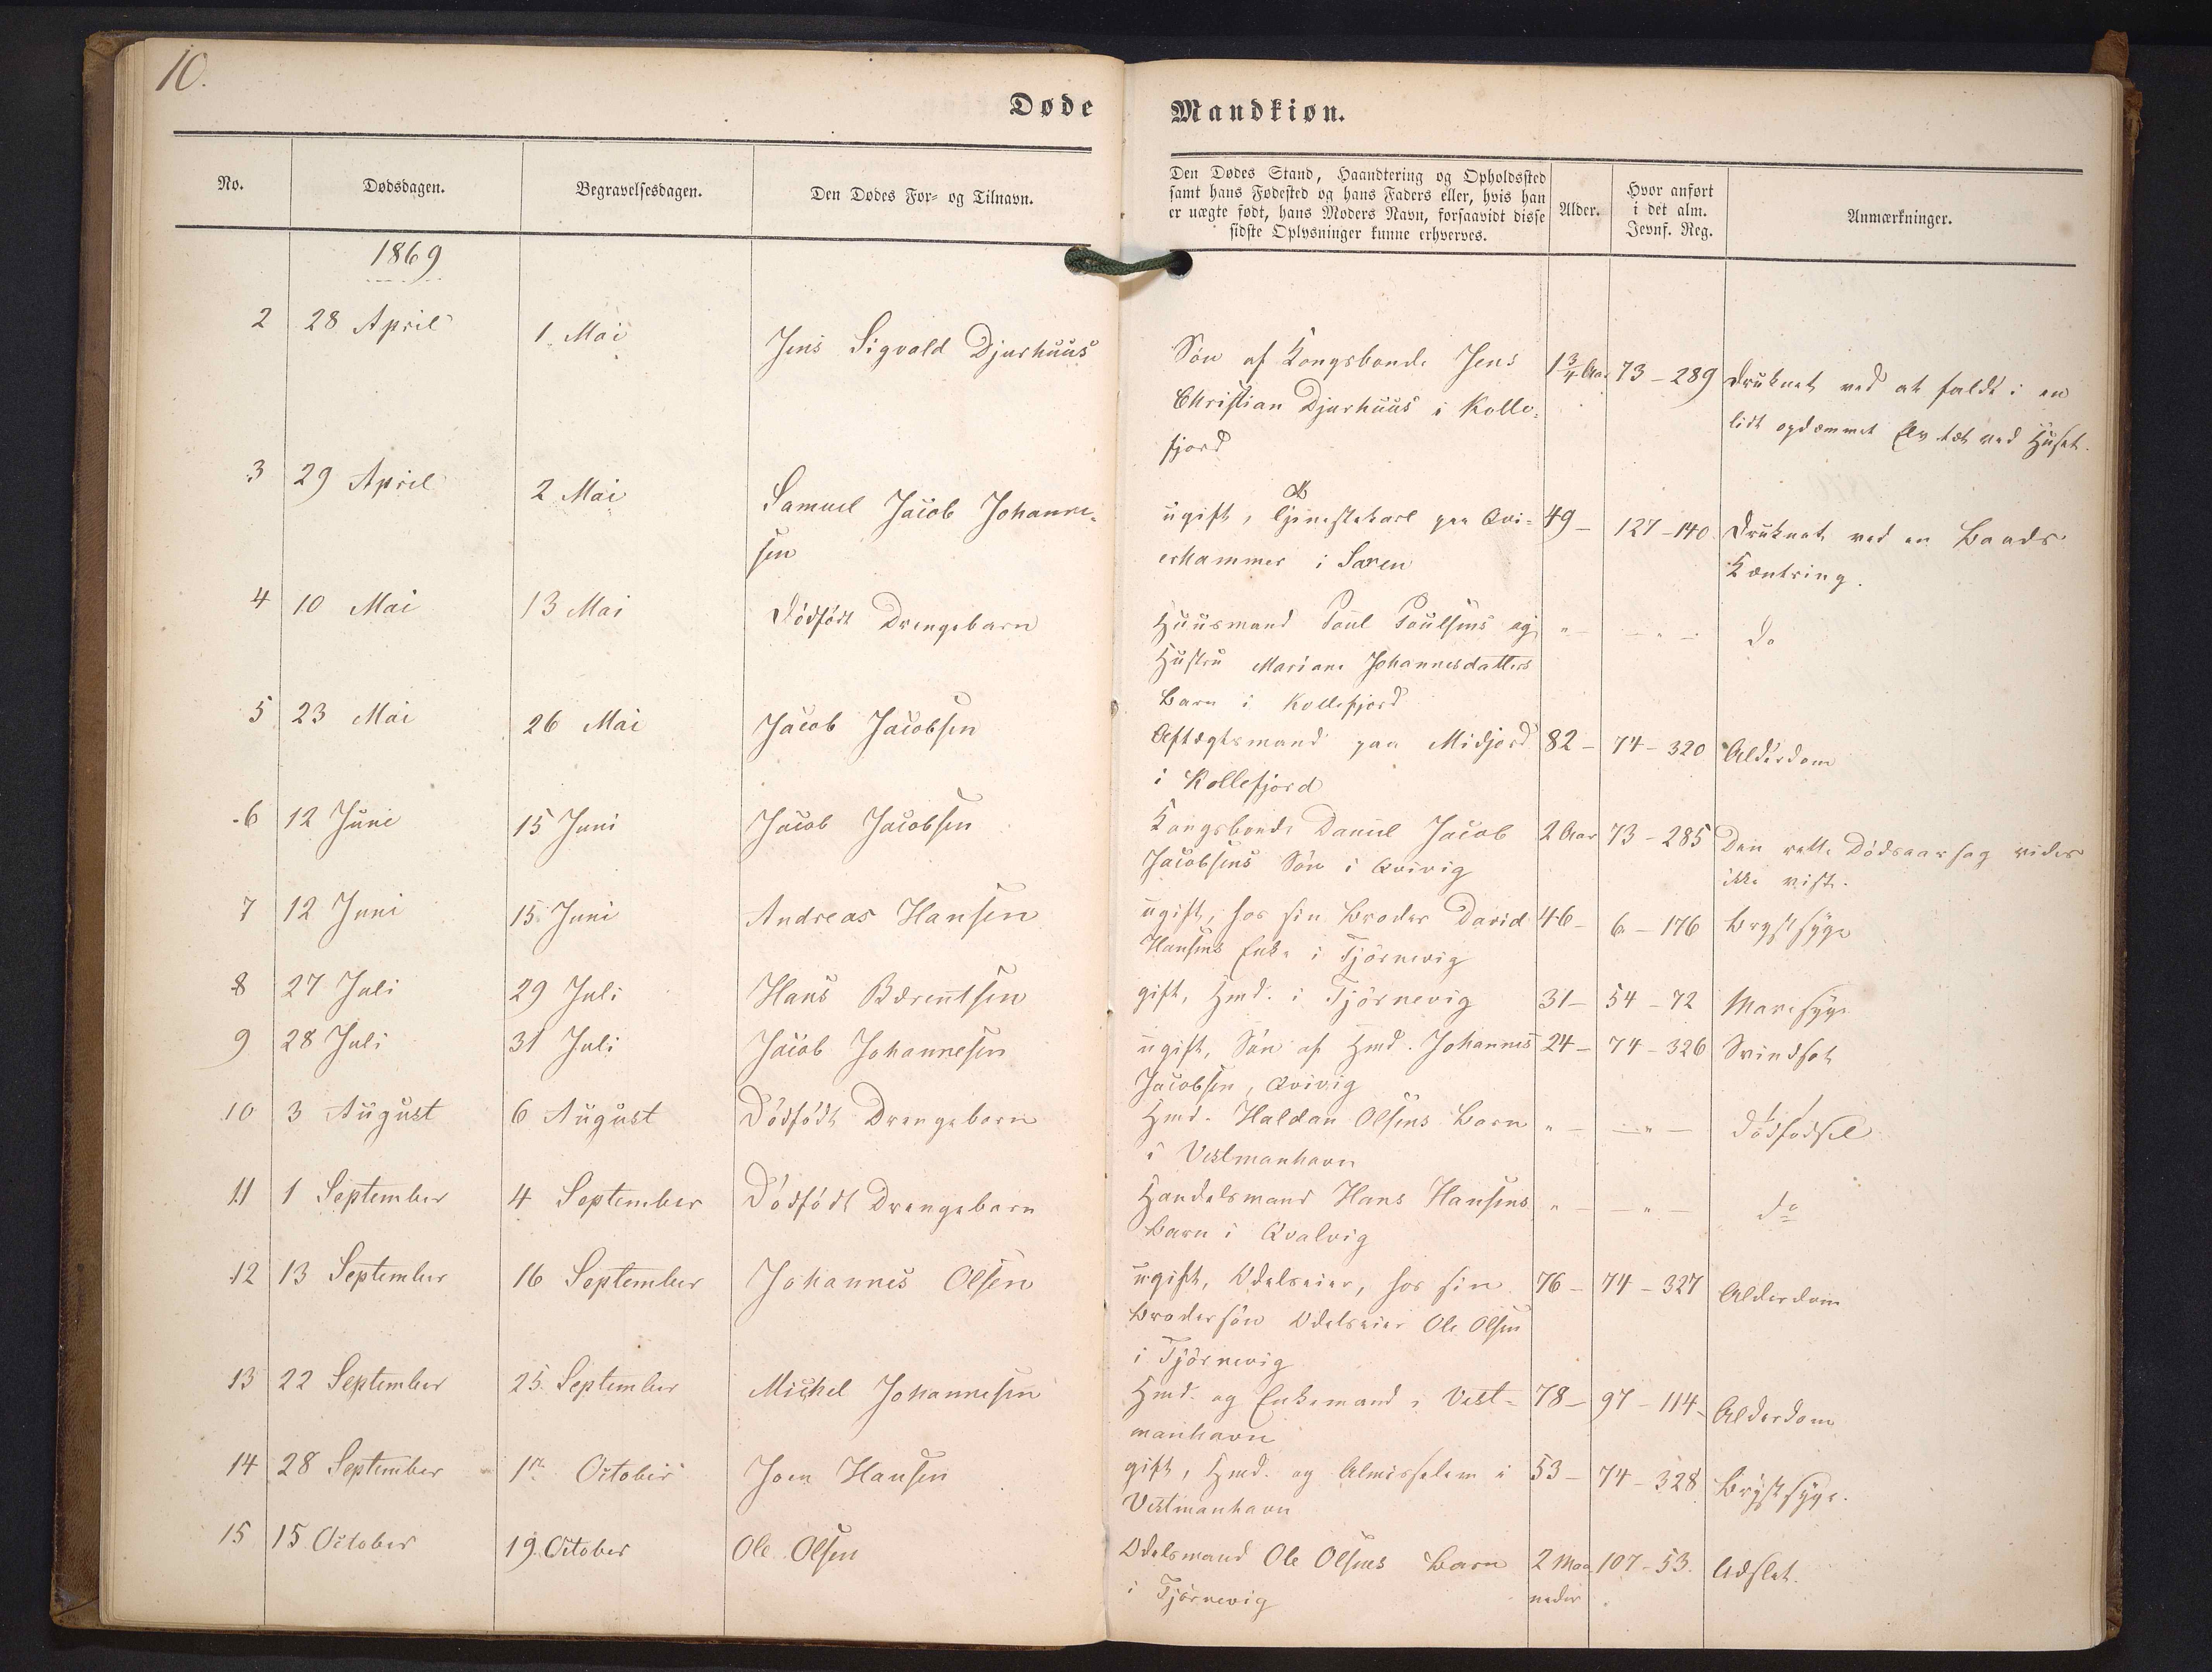 10.
Døde Mandkiøn.
No. Dødsdagen. Begravelsesdagen. Den Dødes For- og Tilnavn.
Den Dødes Stand, Haandtering og Opholdssted
samt hans Fødested og hans Faders eller, hvis han
er uægte født, hans Moders Navn, forsaavidt disse
sidste Oplysninger kunne erhverves.
Alder.
Hvor anført
i det alm.
Jevnf. Reg.
Anmærkninger.
1869
2 28 April 1. Mai Jens Sigvald Djurhuus Søn af Kongsbonde Jens 1 3/4 Aar 73-289 Druknet ved at falde i en
Christian Djurhuus i Kolle- lidt opdæmmet Elv tæt ved Huset.
fjord
3 29 April 2 Mai Samuel Jacob Johanne- ugift, Tjenestekarl paa Qvi- 49- 127-140. Druknet ved en Baads
sen erhammer i Saxen Kæntring.
4 10 Mai 13 Mai Dödfödt Drengebarn Huusmand Poul Poulsens og " - - " - do
Hustru Mariane Johannesdatters
Barn i Kollefjord
5 23 Mai 26 Mai Jacob Jacobsen Aftægtsmand paa Midjord 82- 74-320 Alderdom
i Kollefjord
6 12 Juni 15 Juni Jacob Jacobsen Kongsbonde Daniel Jacob 2 Aar 73-285 Den rette Dödsaarsag vides
Jacobsens Sön i Qvivig ikke vist.
7 12 Juni 15 Juni Andreas Hansen ugift, hos sin Broder David 46- 6-176 Brystsyge
Hansens Enke i Tjörnevig
8 27 Juli 29 Juli Hans Bærentsen gift, Hmd. i Tjörnevig 31- 54-72 Mavesyge
9 28 Juli 31 Juli Jacob Johannesen ugift, Sön af Hmd. Johannes 24- 74-326 Svindsot
Jacobsen, Qvivig
10 3 August 6 August Dödfödt Drengebarn Hmd. Haldan Olsens Barn " - - " - Dödfödsel
i Vestmanhavn
11 1 September 4 September Dödfödt Drengebarn Handelsmand Hans Hansens " - - " - do
Barn i Qvalvig
12 13 September 16 September Johannes Olsen ugift, Odelseier, hos sin 76- 74-327 Alderdom
Brodersön Odelseier Ole Olsen
i Tjörnevig
13 22 September 25 September Michel Johannesen Hmd. og Enkemand i Vest- 78- 97-114- Alderdom
manhavn
14 28 September 1ste October Joen Hansen gift, Hmd. og Almisselem i 53- 74-328 Brystsyge.
Vestmanhavn
15 15 October 19 October Ole Olsen Odelsmand Ole Olsens Barn 2 Maa 107-53. Udslet.
i Tjörnevig neder